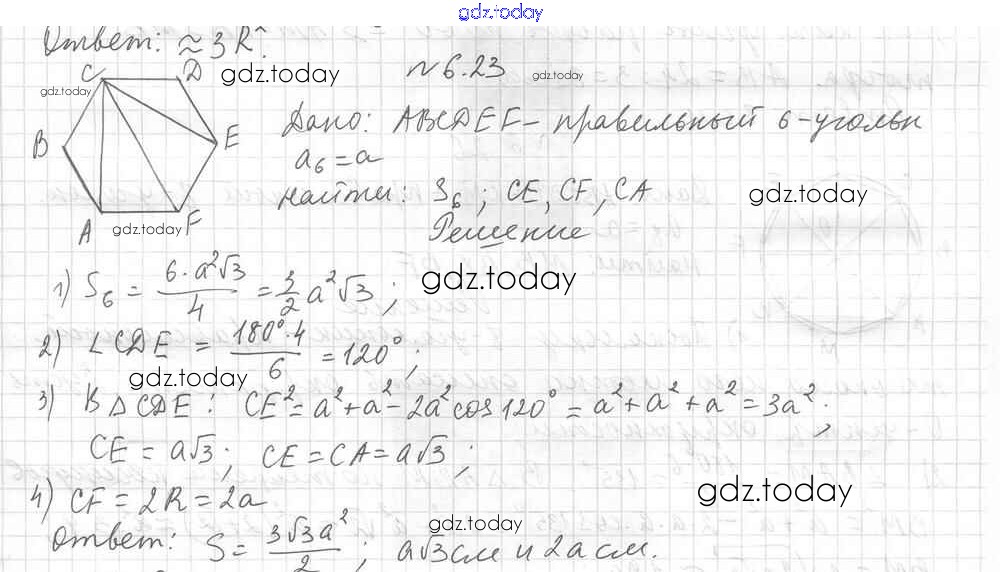 gdz.today
Ответ: ≈ 3R².
C D gdz.today №6.23 gdz.today
gdz.today
Дано: ABCDEF – правильный 6-угольн
B E
a₆ = a
найти: S₆; CE, CF, CA gdz.today
A gdz.today F
Решение
1) S₆ = 6·a²√3/4 = 3/2 a²√3; gdz.today
2) ∠CDE = 180°·4/6 = 120°;
gdz.today
3) В △CDE: CE² = a² + a² – 2a² cos 120° = a² + a² + a² = 3a²;
CE = a√3; CE = CA = a√3;
4) CF = 2R = 2a gdz.today
Ответ: S = 3√3a²/2; a√3 см и 2a см.
gdz.today